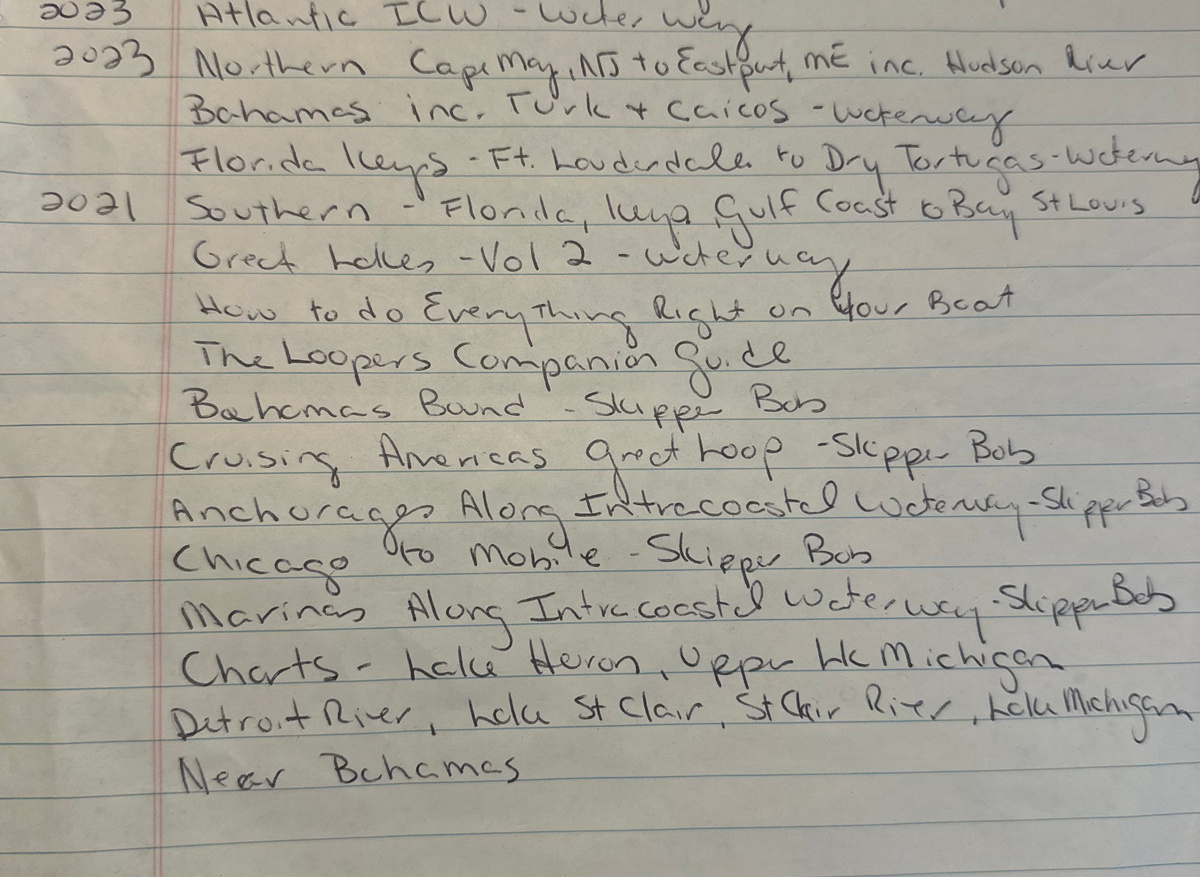 2023 Atlantic ICW - Waterway
2023 Northern Cape May, NJ to Eastport, ME inc. Hudson River
Bahamas inc. Turk + Caicos - Waterway
Florida Keys - Ft. Louderdale to Dry Tortugas - Waterway
2021 Southern - Florida, Keys, Gulf Coast to Bay St Louis
Great Lakes - Vol 2 - Waterway
How to do Everything Right on Your Boat
The Loopers Companion Guide
Bahamas Bound - Skipper Bob
Cruising Americas Great Loop - Skipper Bob
Anchorages Along Intracoastal Waterway - Skipper Bob
Chicago to Mobile - Skipper Bob
Marinas Along Intracoastal Waterway - Skipper Bob
Charts - Lake Heron, Upper Lk Michigan
Detroit River, Lake St Clair, St Clair River, Lake Michigan
Near Bahamas